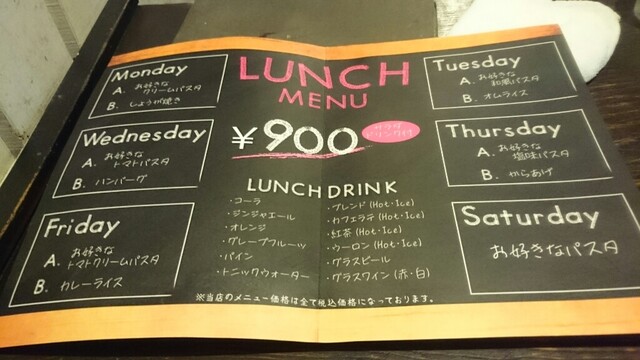 LUNCH
MENU
¥900
サラダ
ドリンク付
Monday
A. お好きな
クリームパスタ
B. しょうが焼き
Tuesday
A. お好きな
和風パスタ
B. オムライス
Wednesday
A. お好きな
トマトパスタ
B. ハンバーグ
Thursday
A. お好きな
塩味パスタ
B. からあげ
Friday
A. お好きな
トマトクリームパスタ
B. カレーライス
Saturday
お好きなパスタ
LUNCH DRINK
・コーラ
・ジンジャエール
・オレンジ
・グレープフルーツ
・パイン
・トニックウォーター
・ブレンド (Hot・Ice)
・カフェラテ (Hot・Ice)
・紅茶 (Hot・Ice)
・ウーロン (Hot・Ice)
・グラスビール
・グラスワイン (赤・白)
※当店のメニュー価格は全て税込価格になっております。